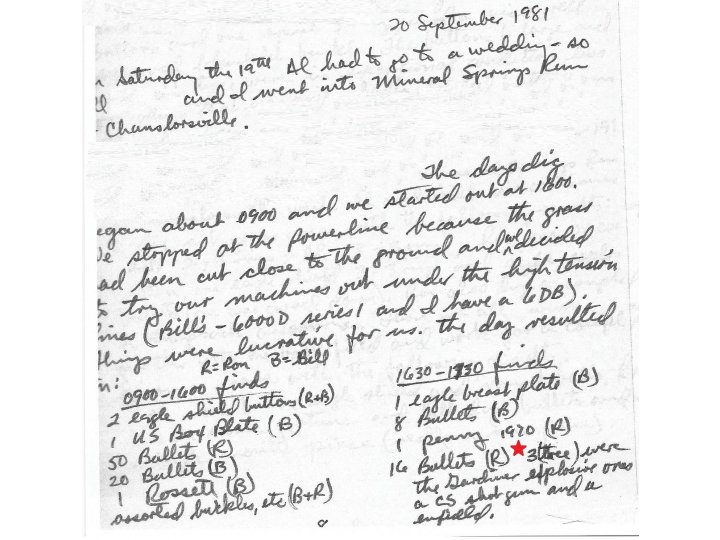 20 September 1981
Saturday the 19th Al had to go to a wedding - so
and I went into Mineral Springs Run
- Chanslorsville.
The days dig
egan about 0900 and we started out at 1600.
e stopped at the Powerline because the grass
ad been cut close to the ground and we decided
to try our machines out under the high tension
lines (Bill's - 6000D series 1 and I have a 6DB).
things were lucrative for us. The day resulted
in:
R=Ron B=Bill
0900-1600 finds
2 eagle shield buttons (R+B)
1 US Box Plate (B)
50 Bullets (R)
20 Bullets (B)
1 Rossett (B)
assorted buckles, etc (B+R)
1630-1730 finds
1 eagle breast plate (B)
8 Bullets (B)
1 penny 1920 (R)
16 Bullets (R) 3 (three) were
the Gardiner explosive ones
a CS shot gun and a
enfield.